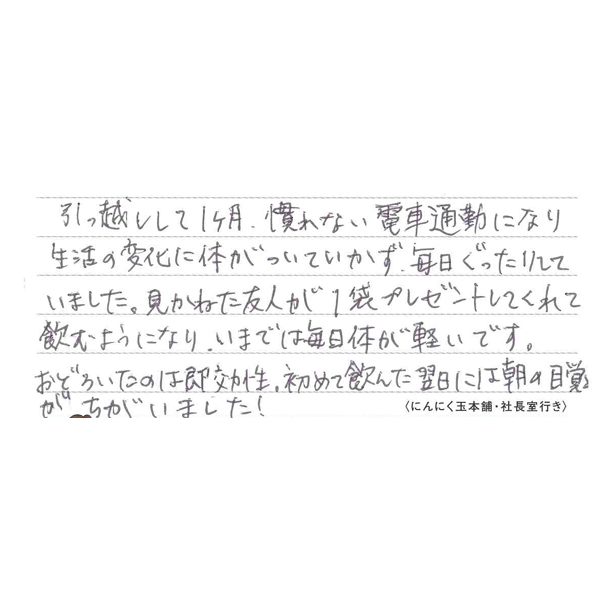 引っ越しして1ヶ月、慣れない電車通勤になり
生活の変化に体がついていかず、毎日ぐったりして
いました。見かねた友人が1袋プレゼントしてくれて
飲むようになり、いまでは毎日体が軽いです。
おどろいたのは即効性。初めて飲んだ翌日には朝の目覚め
が ちがいました!
〈にんにく玉本舗・社長室行き〉